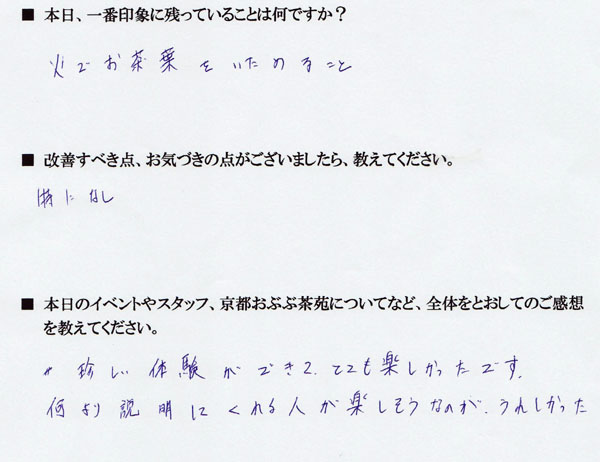 ■ 本日、一番印象に残っていることは何ですか？
火でお茶葉をいためること
■ 改善すべき点、お気づきの点がございましたら、教えてください。
特になし
■ 本日のイベントやスタッフ、京都おぶぶ茶苑についてなど、全体をとおしてのご感想
を教えてください。
珍しい体験ができて、とても楽しかったです。
何より説明にくれる人が楽しそうなのが、うれしかった